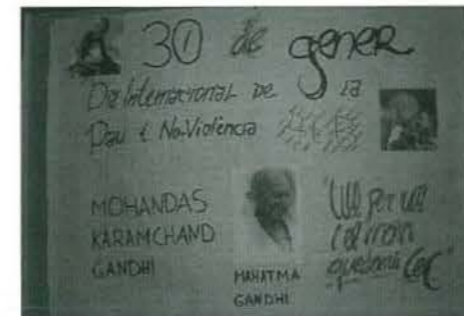 30 de gener
Dia Internacional DE la
Pau i No-Violència
MOHANDAS
KARAMCHAND
GANDHI
MAHATMA
GANDHI
"Ull per ull
i el món
quedarà cec"